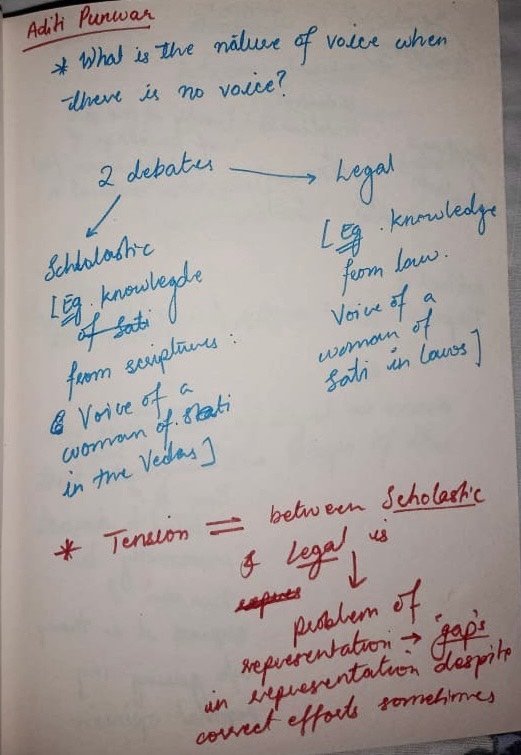 Aditi Punwar
* What is the nature of voice when
there is no voice?
2 debates → Legal
Scholastic
[Eg. knowlegde
of sati
from scriptures:
Voice of a
woman of sati
in the Vedas]
[Eg. knowledge
from law.
Voice of a
woman of
Sati in laws]
* Tension ⇌ between Scholastic
& Legal is
problem of
representation → "gap"s
in representation despite
correct efforts sometimes